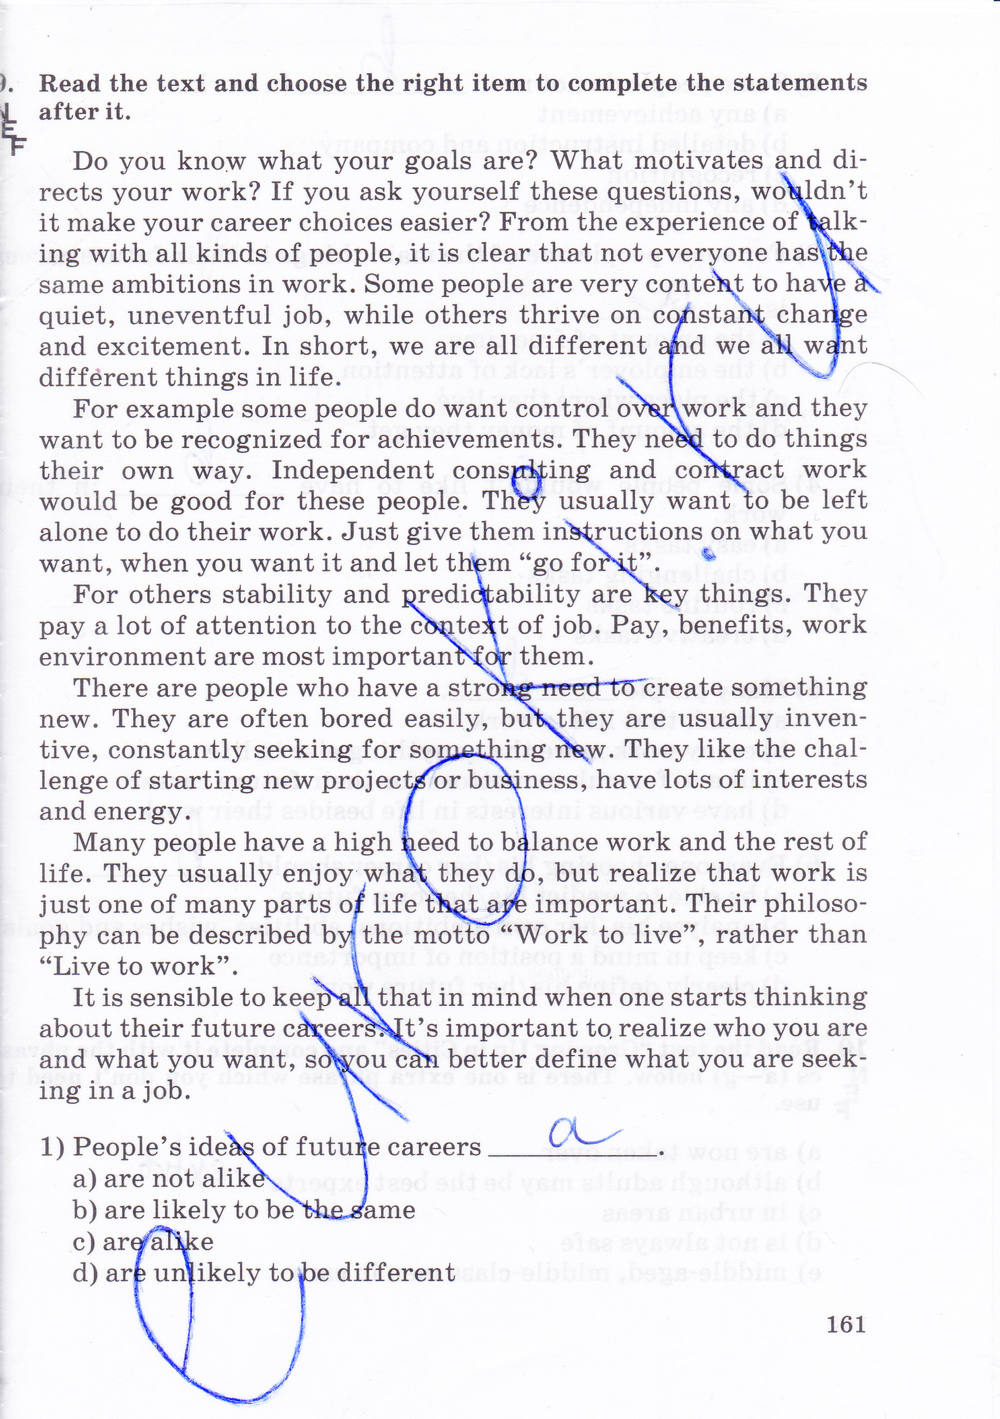 9. Read the text and choose the right item to complete the statements
after it.
Do you know what your goals are? What motivates and di-
rects your work? If you ask yourself these questions, wouldn't
it make your career choices easier? From the experience of talk-
ing with all kinds of people, it is clear that not everyone has the
same ambitions in work. Some people are very content to have a
quiet, uneventful job, while others thrive on constant change
and excitement. In short, we are all different and we all want
different things in life.
For example some people do want control over work and they
want to be recognized for achievements. They need to do things
their own way. Independent consulting and contract work
would be good for these people. They usually want to be left
alone to do their work. Just give them instructions on what you
want, when you want it and let them “go for it”.
For others stability and predictability are key things. They
pay a lot of attention to the context of job. Pay, benefits, work
environment are most important for them.
There are people who have a strong need to create something
new. They are often bored easily, but they are usually inven-
tive, constantly seeking for something new. They like the chal-
lenge of starting new projects or business, have lots of interests
and energy.
Many people have a high need to balance work and the rest of
life. They usually enjoy what they do, but realize that work is
just one of many parts of life that are important. Their philoso-
phy can be described by the motto “Work to live”, rather than
“Live to work”.
It is sensible to keep all that in mind when one starts thinking
about their future careers. It's important to realize who you are
and what you want, so you can better define what you are seek-
ing in a job.
1) People's ideas of future careers a.
a) are not alike
b) are likely to be the same
c) are alike
d) are unlikely to be different
161